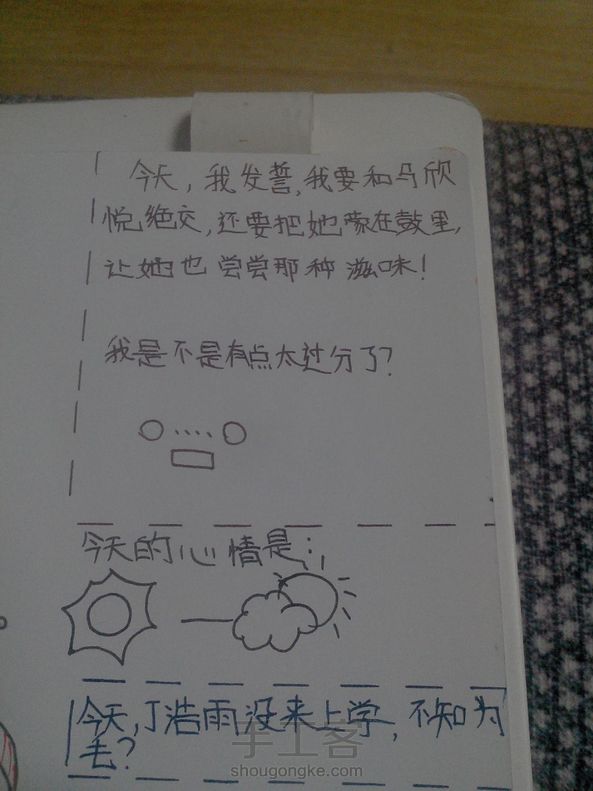 今天，我发誓，我要和马欣
悦绝交，还要把她蒙在鼓里，
让她也尝尝那种滋味！
我是不是有点太过分了？
今天的心情是：
今天，丁浩雨没来上学，不知为
毛？
手工客
shougongke.com